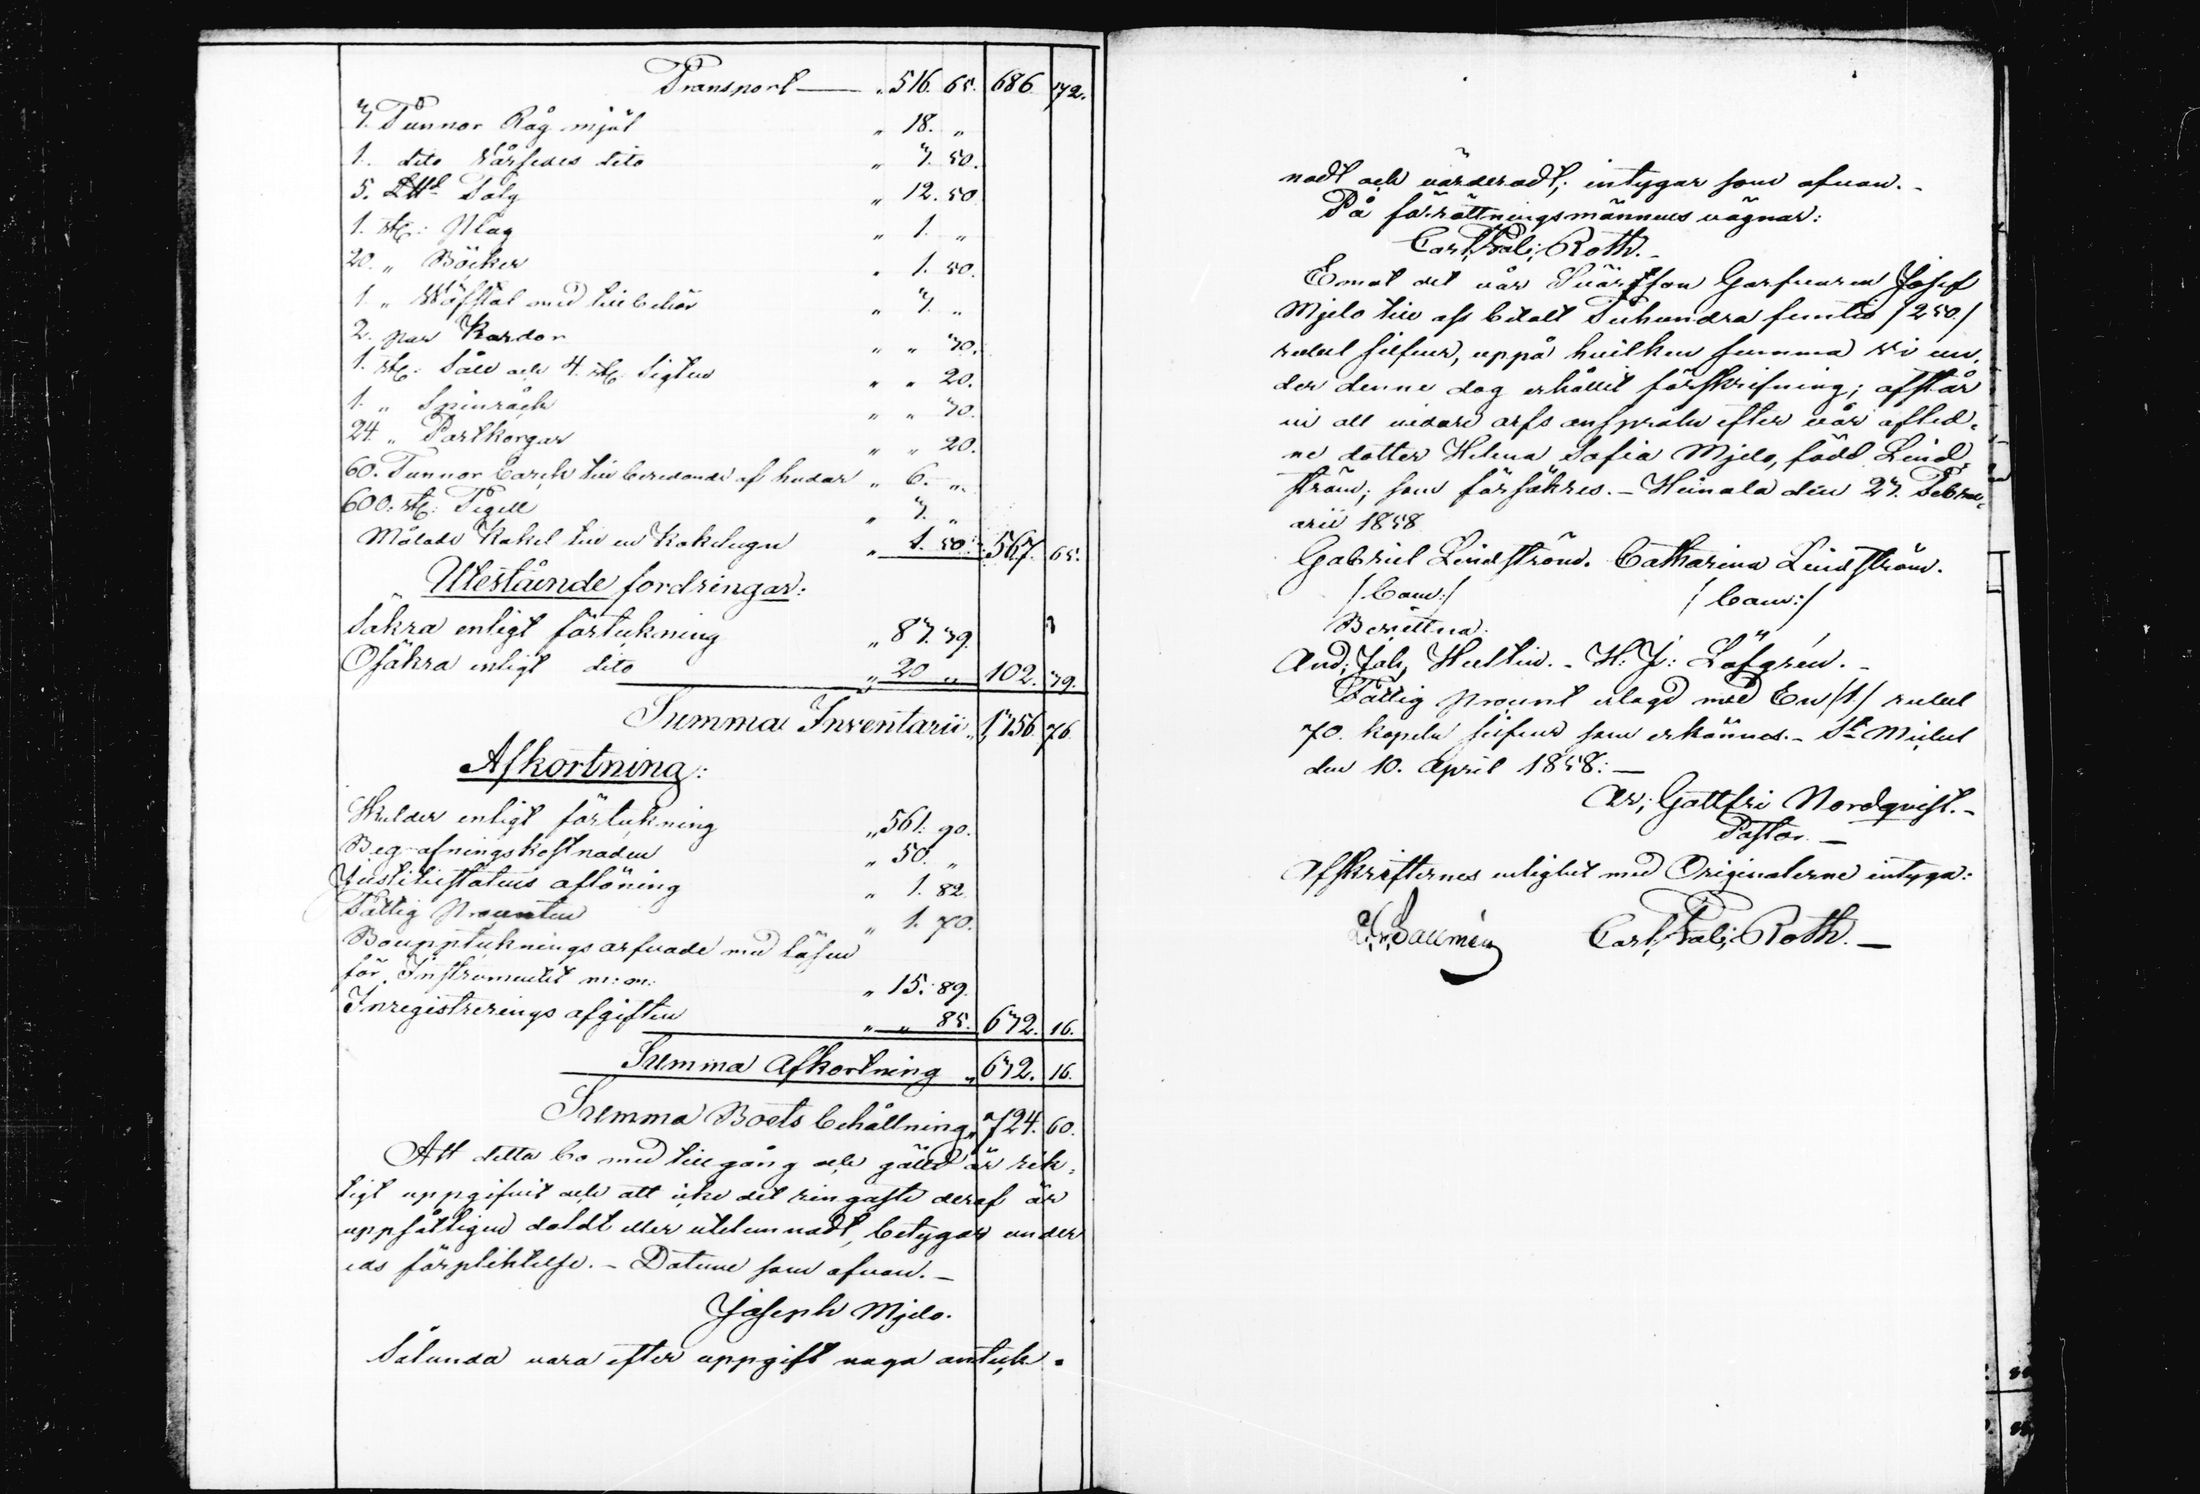 Transport — „ 516. 65. 686. 72.
7. Tunnor Råg mjöl „ 18. „
1. dito dito „ 7. 50.
5. L℔ Talg „ 12. 50.
1. st: Plog „ 1. „
20. „ Böcker „ 1. 50.
1. „ Wäfstol med tillbehör „ 7. „
2. par Kardor „ „ 70.
1. st: Såll och 4. st: Sigtar „ „ 20.
1. „ Spinråck „ „ 70.
24. „ Partkorgar „ „ 20.
60. Tunnor barck till beredande af hudar „ 6. „
600. st: Tegell „ 7. „
Målade Kakel till en Kakelugn „ 1. 50. 567. 65.
Utestående fordringar:
Säkra enligt förtekning „ 87. 79.
Osäkra enligt dito „ 20 „ 102. 79.
Summa Inventarii „ 1,756. 76.
Afkortning:
Skulder enligt förtekning „ 561. 90.
Begrafningskostnaden „ 50. „
Justitiæstatens aflöning „ 1. 82.
Fattig Procenten „ 1. 70.
Bouppteknings arfvode med lösen
för Instrumentet m: m: „ 15. 89.
Inregistrerings afgiften „ „ 85. 672. 16.
Summa Afkortning „ 672. 16.
Summa Boets behållning „ 724. 60.
Att detta bo med till gång och gäld är rik-
tigt uppgifvit och att icke det ringaste deraf är
uppsåtligen doldt eller utelemnadt, betygar under
eds förpliktelse. – Datum som ofvan. –
Joseph Mjelo.
Sålunda vara efter uppgift noga anteck-
nadt och värderadt; intygar som ofvan. –
På förrättningsmännens vägnar:
Carl Fab: Roth. –
Emot det vår Svärson Garfvaren Josef
Mjelo till oss betalt Tuhundra femtio /250./
rubel silfver, uppå hvilken summa vi un-
der denne dag erhållit förskrifning; afstår
vi all vidare arfs anspråk efter vår aflid-
ne dotter Helena Sofia Mjelo, född Lind-
ström; som försäkres. – Heinola den 27. Febru-
arii 1858
Gabriel Lindström. Catharina Lindström.
/bom:/ /bom:/
Bevittna:
And: Joh: Hultin. – H: J: Löfgrén. –
Fattig procent erlagd med En /1/ rubel
70. kopek silfver som erkännes. – S:t Michel
den 10. April 1858: —
Ar; Gottfri Nordqvist. –
Pastor. —
Afskrifternes enlighet med Originalerne intyga:
Carl Fab: Roth. —